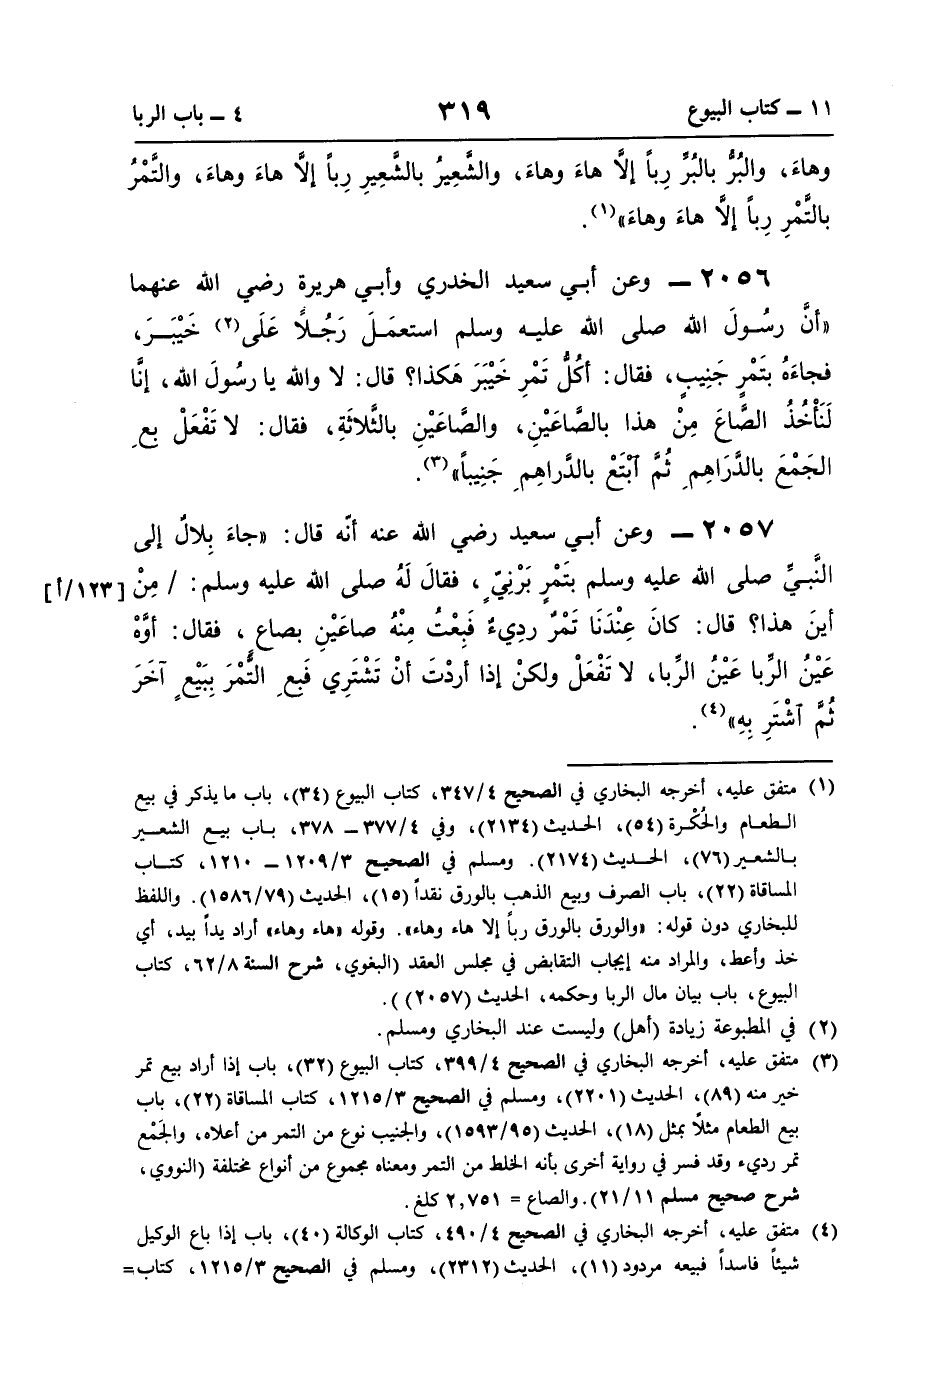 ١١ ــ كتاب البيوع ٣١٩ ٤ ــ باب الربا
وهاءَ، والبُرُّ بالبُرِّ رِباً إلَّا هاءَ وهاءَ، والشَّعِيرُ بالشَّعِيرِ رِباً إلَّا هاءَ وهاءَ، والتَّمْرُ
بالتَّمْرِ رِباً إلَّا هاءَ وهاءَ»(١).
٢٠٥٦ ــ وعن أبي سعيد الخدري وأبي هريرة رضي الله عنهما
«أنَّ رسُولَ الله صلى الله عليه وسلم استعمَلَ رَجُلًا عَلَى(٢) خَيْبَرَ،
فجاءَهُ بتَمْرٍ جَنِيبٍ، فقال: أكُلُّ تَمْرِ خَيْبَرَ هَكذا؟ قال: لا والله يا رسُولَ الله، إنَّا
لَنَأْخُذُ الصَّاعَ مِنْ هذا بالصَّاعَيْنِ، والصَّاعَيْنِ بالثَّلاثَةِ، فقال: لا تَفْعَلْ بِعِ
الجَمْعَ بالدَّرَاهِمِ ثُمَّ ٱبْتَعْ بالدَّراهِمِ جَنِيباً»(٣).
٢٠٥٧ ــ وعن أبي سعيد رضي الله عنه أنّه قال: «جاءَ بِلالٌ إلى
النَّبيِّ صلى الله عليه وسلم بتَمْرٍ بَرْنِيٍّ، فقالَ لَهُ صلى الله عليه وسلم: / مِنْ [١٢٣/أ]
أينَ هذا؟ قال: كانَ عِنْدَنَا تَمْرٌ ردِيءٌ فَبِعْتُ مِنْهُ صاعَيْنِ بصاعٍ، فقال: أوَّهْ
عَيْنُ الرِّبا عَيْنُ الرِّبا، لا تَفْعَلْ ولكنْ إذا أردْتَ أنْ تَشْتَرِي فَبِعِ التَّمْرَ بِبَيْعٍ آخَرَ
ثُمَّ ٱشْتَرِ بِهِ»(٤).
(١) متفق عليه، أخرجه البخاري في الصحيح ٣٤٧/٤، كتاب البيوع (٣٤)، باب ما يذكر في بيع
الطعام والحُكْرة (٥٤)، الحديث (٢١٣٤)، وفي ٣٧٧/٤ ــ ٣٧٨، باب بيع الشعير
بالشعير (٧٦)، الحديث (٢١٧٤). ومسلم في الصحيح ١٢٠٩/٣ ــ ١٢١٠، كتاب
المساقاة (٢٢)، باب الصرف وبيع الذهب بالورق نقداً (١٥)، الحديث (١٥٨٦/٧٩). واللفظ
للبخاري دون قوله: «والورق بالورق رباً إلا هاء وهاء». وقوله «هاء وهاء» أراد يداً بيد، أي
خذ وأعط، والمراد منه إيجاب التقابض في مجلس العقد (البغوي، شرح السنة ٦٢/٨، كتاب
البيوع، باب بيان مال الربا وحكمه، الحديث (٢٠٥٧) ).
(٢) في المطبوعة زيادة (أهل) وليست عند البخاري ومسلم.
(٣) متفق عليه، أخرجه البخاري في الصحيح ٣٩٩/٤، كتاب البيوع (٣٢)، باب إذا أراد بيع تمر
خير منه (٨٩)، الحديث (٢٢٠١)، ومسلم في الصحيح ١٢١٥/٣، كتاب المساقاة (٢٢)، باب
بيع الطعام مثلاً بمثل (١٨)، الحديث (١٥٩٣/٩٥)، والجنيب نوع من التمر من أعلاه، والجَمْع
تمر رديء وقد فسر في رواية أخرى بأنه الخلط من التمر ومعناه مجموع من أنواع مختلفة (النووي،
شرح صحيح مسلم ٢١/١١). والصاع = ٢,٧٥١ كلغ.
(٤) متفق عليه، أخرجه البخاري في الصحيح ٤٩٠/٤، كتاب الوكالة (٤٠)، باب إذا باع الوكيل
شيئاً فاسداً فبيعه مردود (١١)، الحديث (٢٣١٢)، ومسلم في الصحيح ١٢١٥/٣، كتاب=